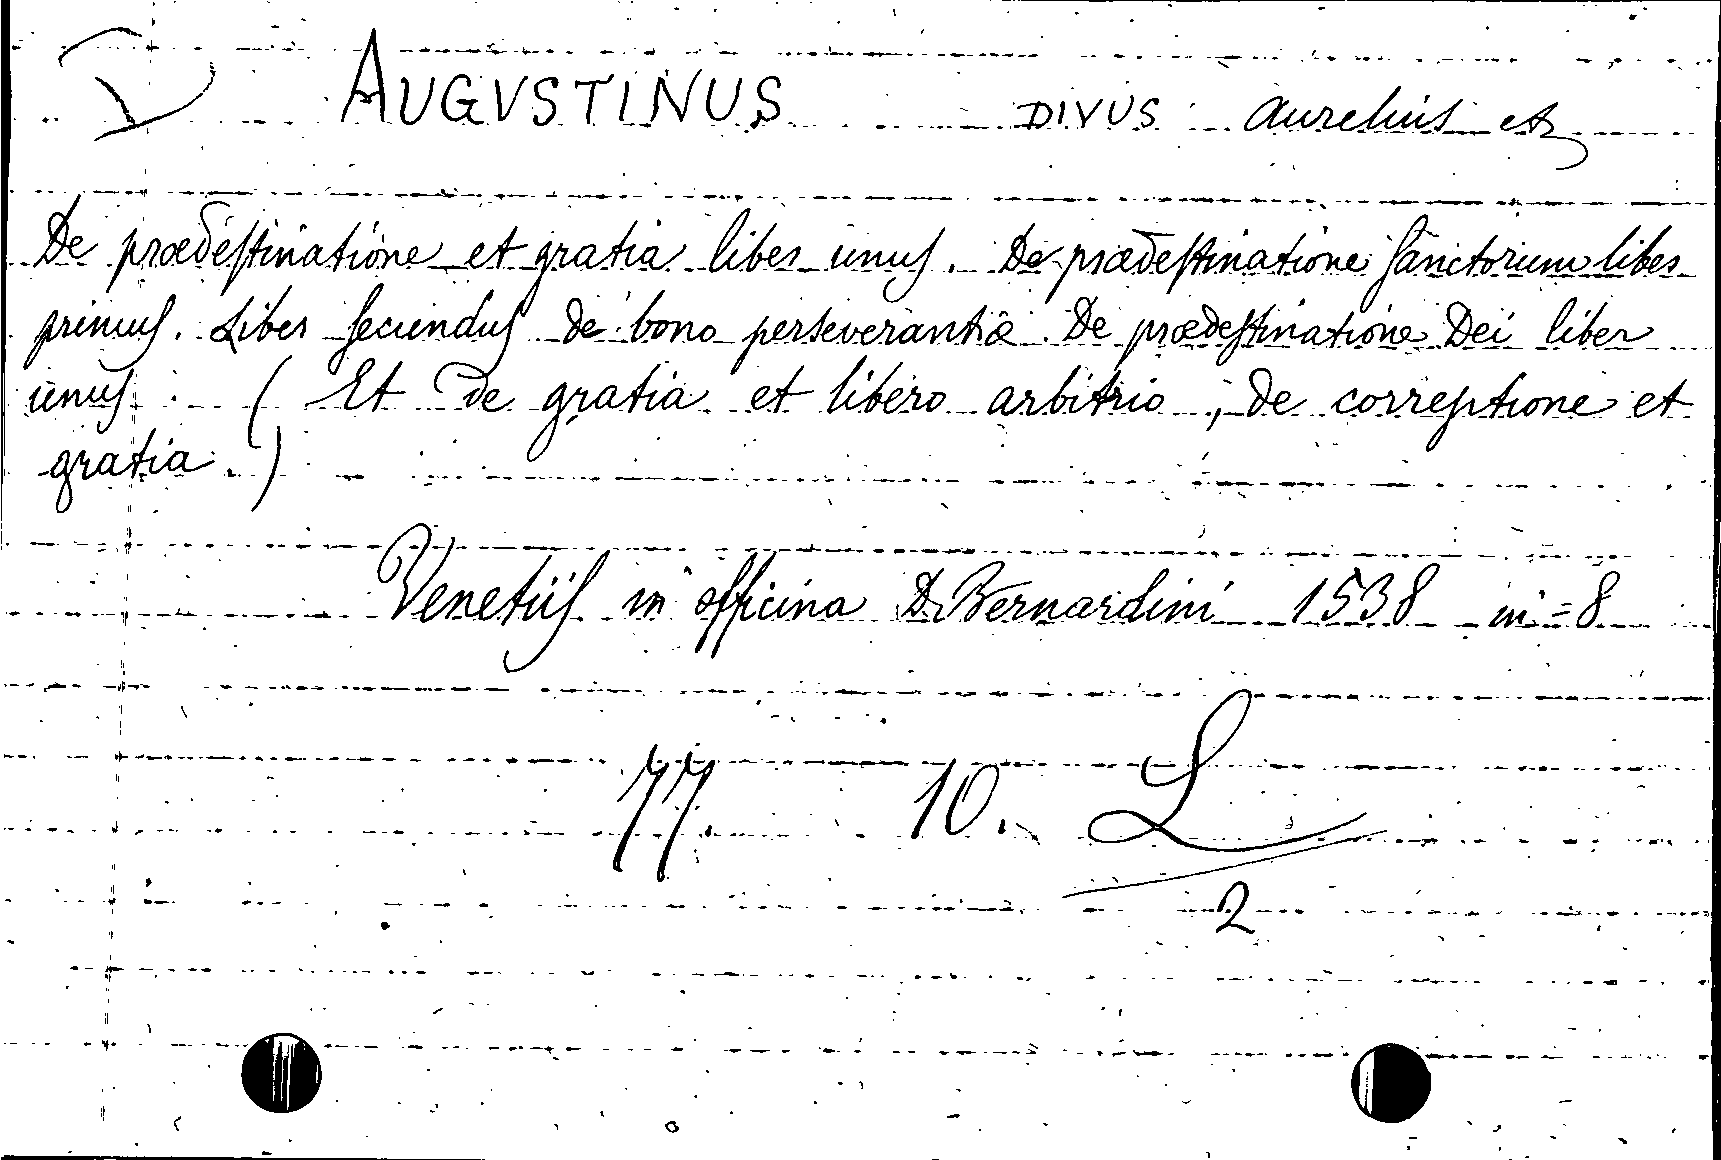 AUGVSTINUS DIVUS Aurelius
De prædestinatione et gratia liber unus. De prædestinatione Sanctorum liber
primus. Liber secundus de bono perseverantiæ. De prædestinatione Dei liber
unus. ( Et de gratia et libero arbitrio, de correptione et
gratia. )
Venetiis in officina D. Bernardini 1538 in=8
77. 10. L
2